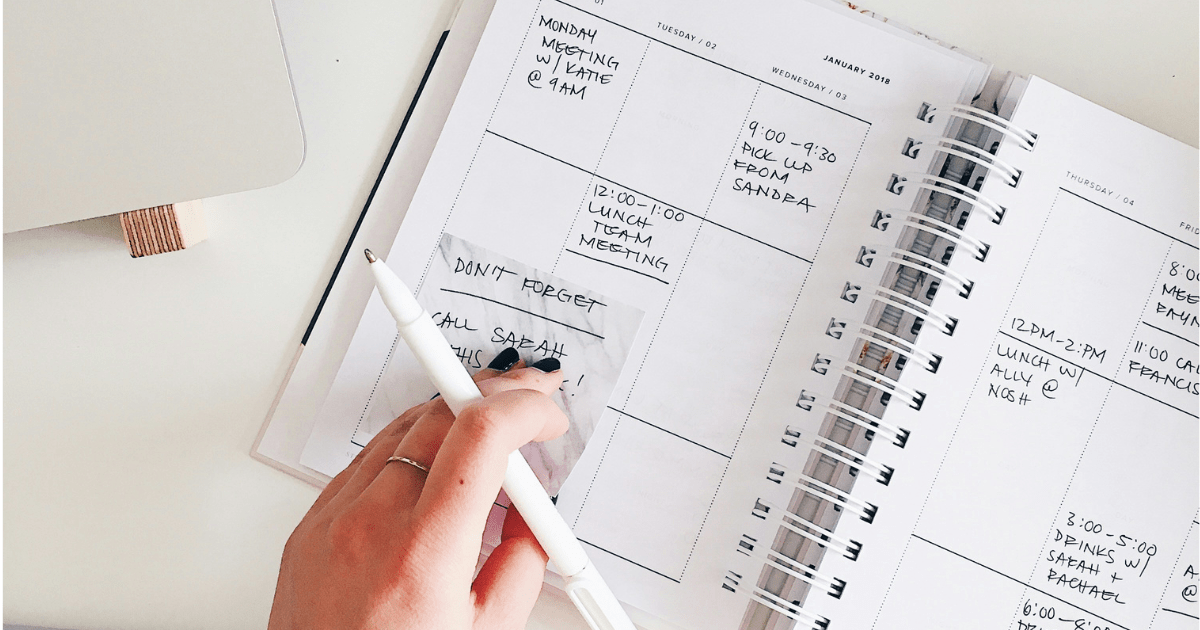 01
TUESDAY / 02
JANUARY 2018
WEDNESDAY / 03
MONDAY
MEETING
W/ KATIE
@ 9AM
9:00 - 9:30
PICK UP
FROM
SANDRA
12:00 - 1:00
LUNCH
TEAM
MEETING
DON'T FORGET
CALL SARAH
THURSDAY / 04
FRID
12PM - 2:PM
LUNCH W/
ALLY @
NOSH
8:00
MEE
RAYN
11:00 CAL
FRANCIS
3:00 - 5:00
DRINKS W/
SARAH +
RACHAEL
6:00 - 8:
A
@